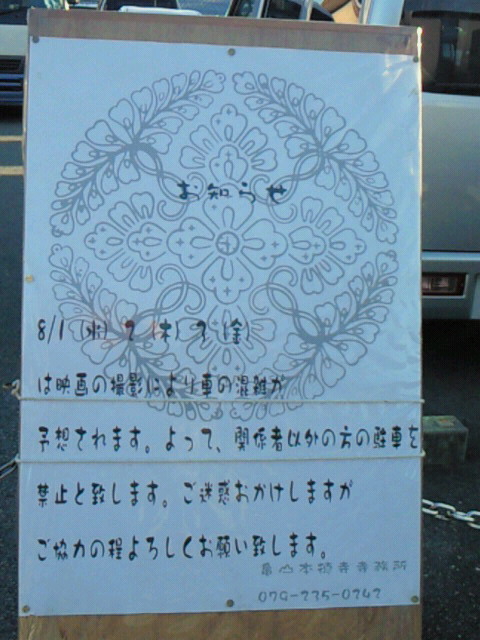 お知らせ
8/1(水)2(木)3(金)
は映画の撮影により車の混雑が
予想されます。よって、関係者以外の方の駐車を
禁止と致します。ご迷惑おかけしますが
ご協力の程よろしくお願い致します。
亀山本徳寺寺務所
079-235-0242